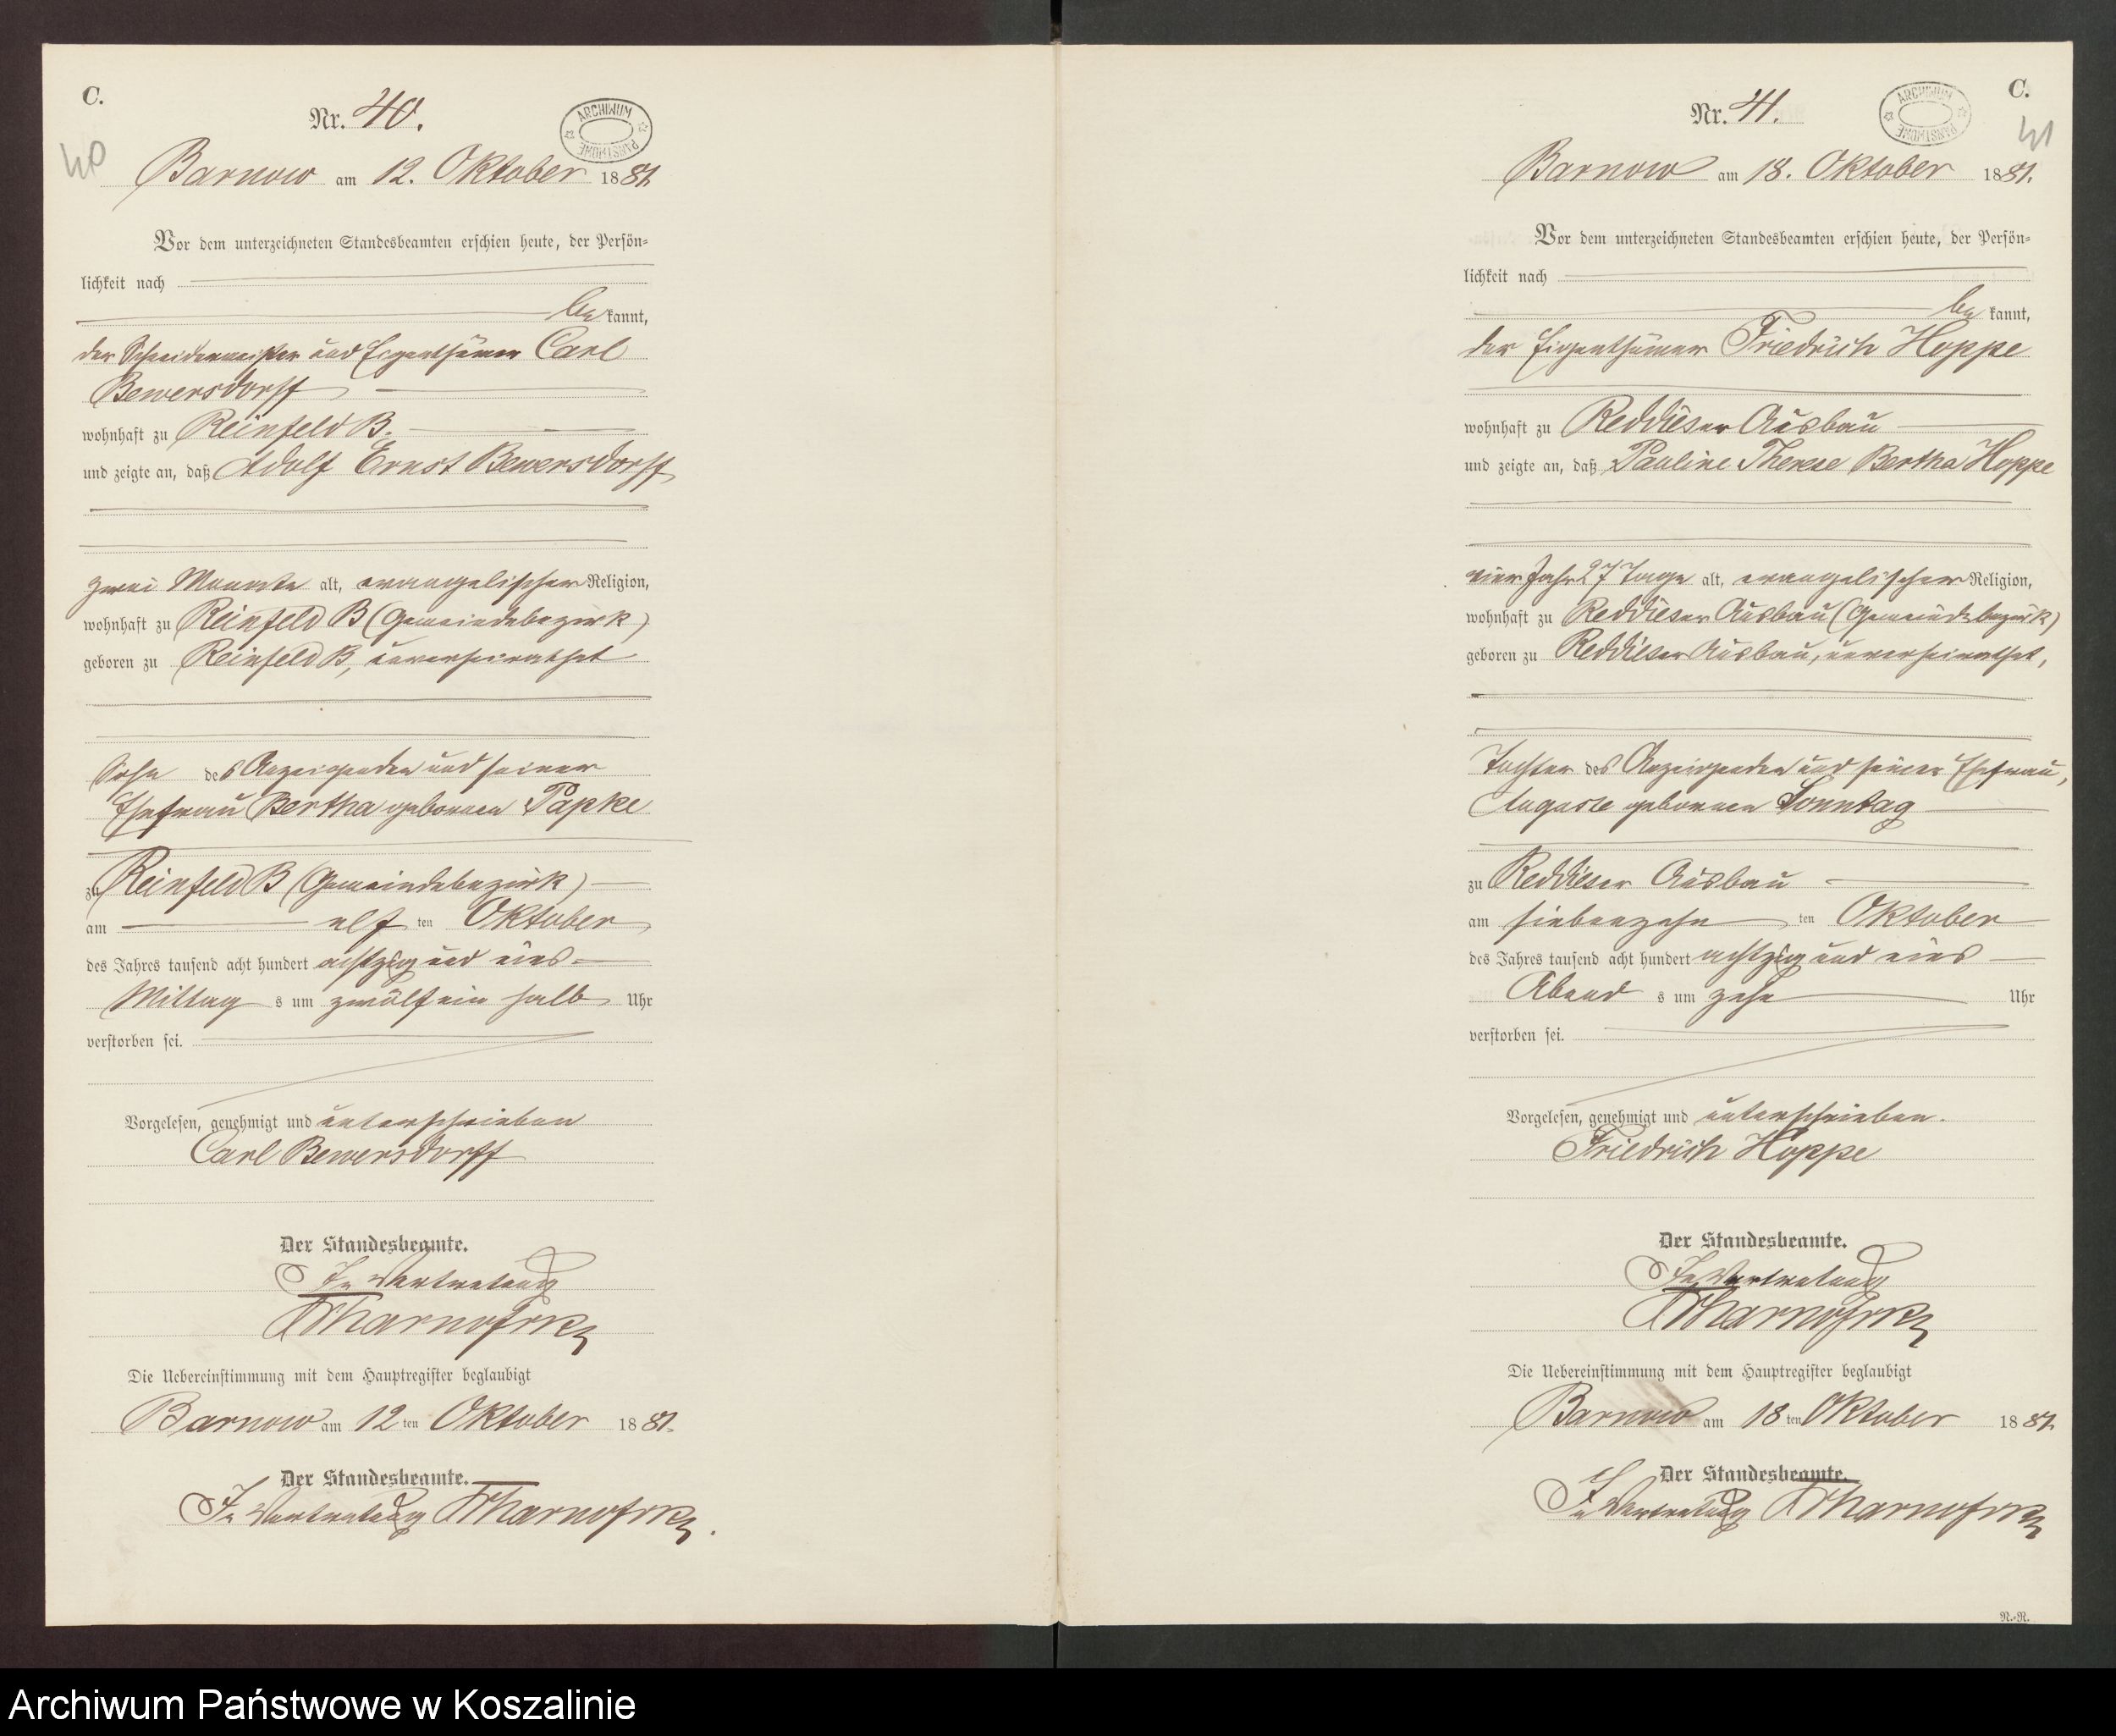 C.
Nr. 40.
ARCHIWUM PAŃSTWOWE
40
Barnow am 12. Oktober 1881.
Vor dem unterzeichneten Standesbeamten erschien heute, der Persön-
lichkeit nach
bekannt,
der Schneidermeister und Eigenthümer Carl
Bewersdorff
wohnhaft zu Reinfeld B.
und zeigte an, daß Adolf Ernst Bewersdorff
zwei Monate alt, evangelischer Religion,
wohnhaft zu Reinfeld B (Gemeindebezirk)
geboren zu Reinfeld B, unverheirathet
Sohn des Anzeigenden und seiner
Ehefrau Bertha geborenen Papke
zu Reinfeld B (Gemeindebezirk)
am elf ten Oktober
des Jahres tausend acht hundert achtzig und eins
Mittag s um zwölf ein halb Uhr
verstorben sei.
Vorgelesen, genehmigt und unterschrieben
Carl Bewersdorff
Der Standesbeamte.
In Vertretung
Die Uebereinstimmung mit dem Hauptregister beglaubigt
Barnow am 12 ten Oktober 1881.
Der Standesbeamte.
In Vertretung
C.
Nr. 41.
ARCHIWUM PAŃSTWOWE
41
Barnow am 18. Oktober 1881.
Vor dem unterzeichneten Standesbeamten erschien heute, der Persön-
lichkeit nach
bekannt,
der Eigenthümer Friedrich Hoppe
wohnhaft zu Reddieser Ausbau
und zeigte an, daß Pauline Therese Bertha Hoppe
vier Jahr 27 Tage alt, evangelischer Religion,
wohnhaft zu Reddieser Ausbau (Gemeindebezirk)
geboren zu Reddieser Ausbau, unverheirathet,
Tochter des Anzeigenden und seiner Ehefrau,
Auguste geborenen Sonntag
zu Reddieser Ausbau
am siebenzehn ten Oktober
des Jahres tausend acht hundert achtzig und eins
Abend s um zehn Uhr
verstorben sei.
Vorgelesen, genehmigt und unterschrieben.
Friedrich Hoppe
Der Standesbeamte.
In Vertretung
Die Uebereinstimmung mit dem Hauptregister beglaubigt
Barnow am 18 ten Oktober 1881.
Der Standesbeamte.
In Vertretung
N.-N.
Archiwum Państwowe w Koszalinie